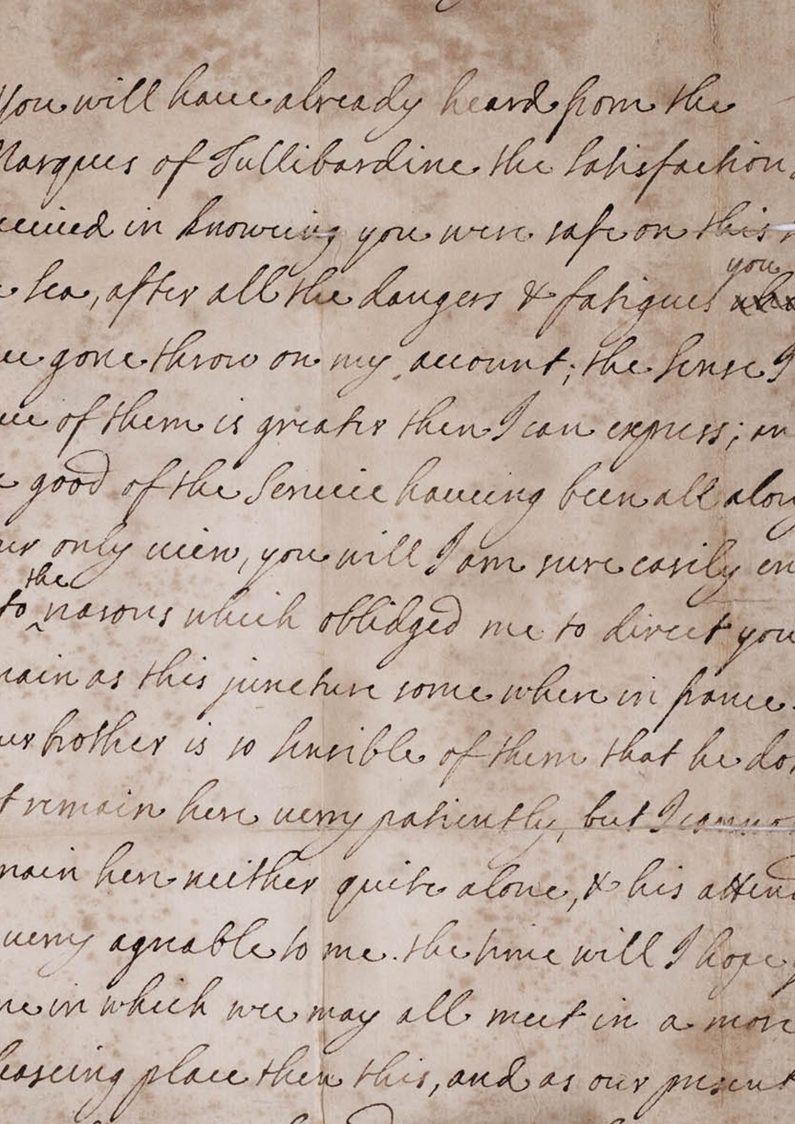 You will haue already heard from the
Marques of Tullibardine the satisfaction
ceiued in knoweing you were safe on this
you
sea, after all the dangers & fatigues
ue gone throw on my account; the sense I
ue of them is greater then I can express; an
good of the seruice haueing been all alon
ur only uiew, you will I am sure easily en
the
to reasons which oblidged me to direct you
main as this juncture some where in france.
ur brother is so sensible of them that he do
t remain here uerry patiently, but I cannot
main here neither quite alone, & his attend
uerry agreable to me. the time will I hope
me in which wee may all meet in a more
leaseing place then this, and as our present